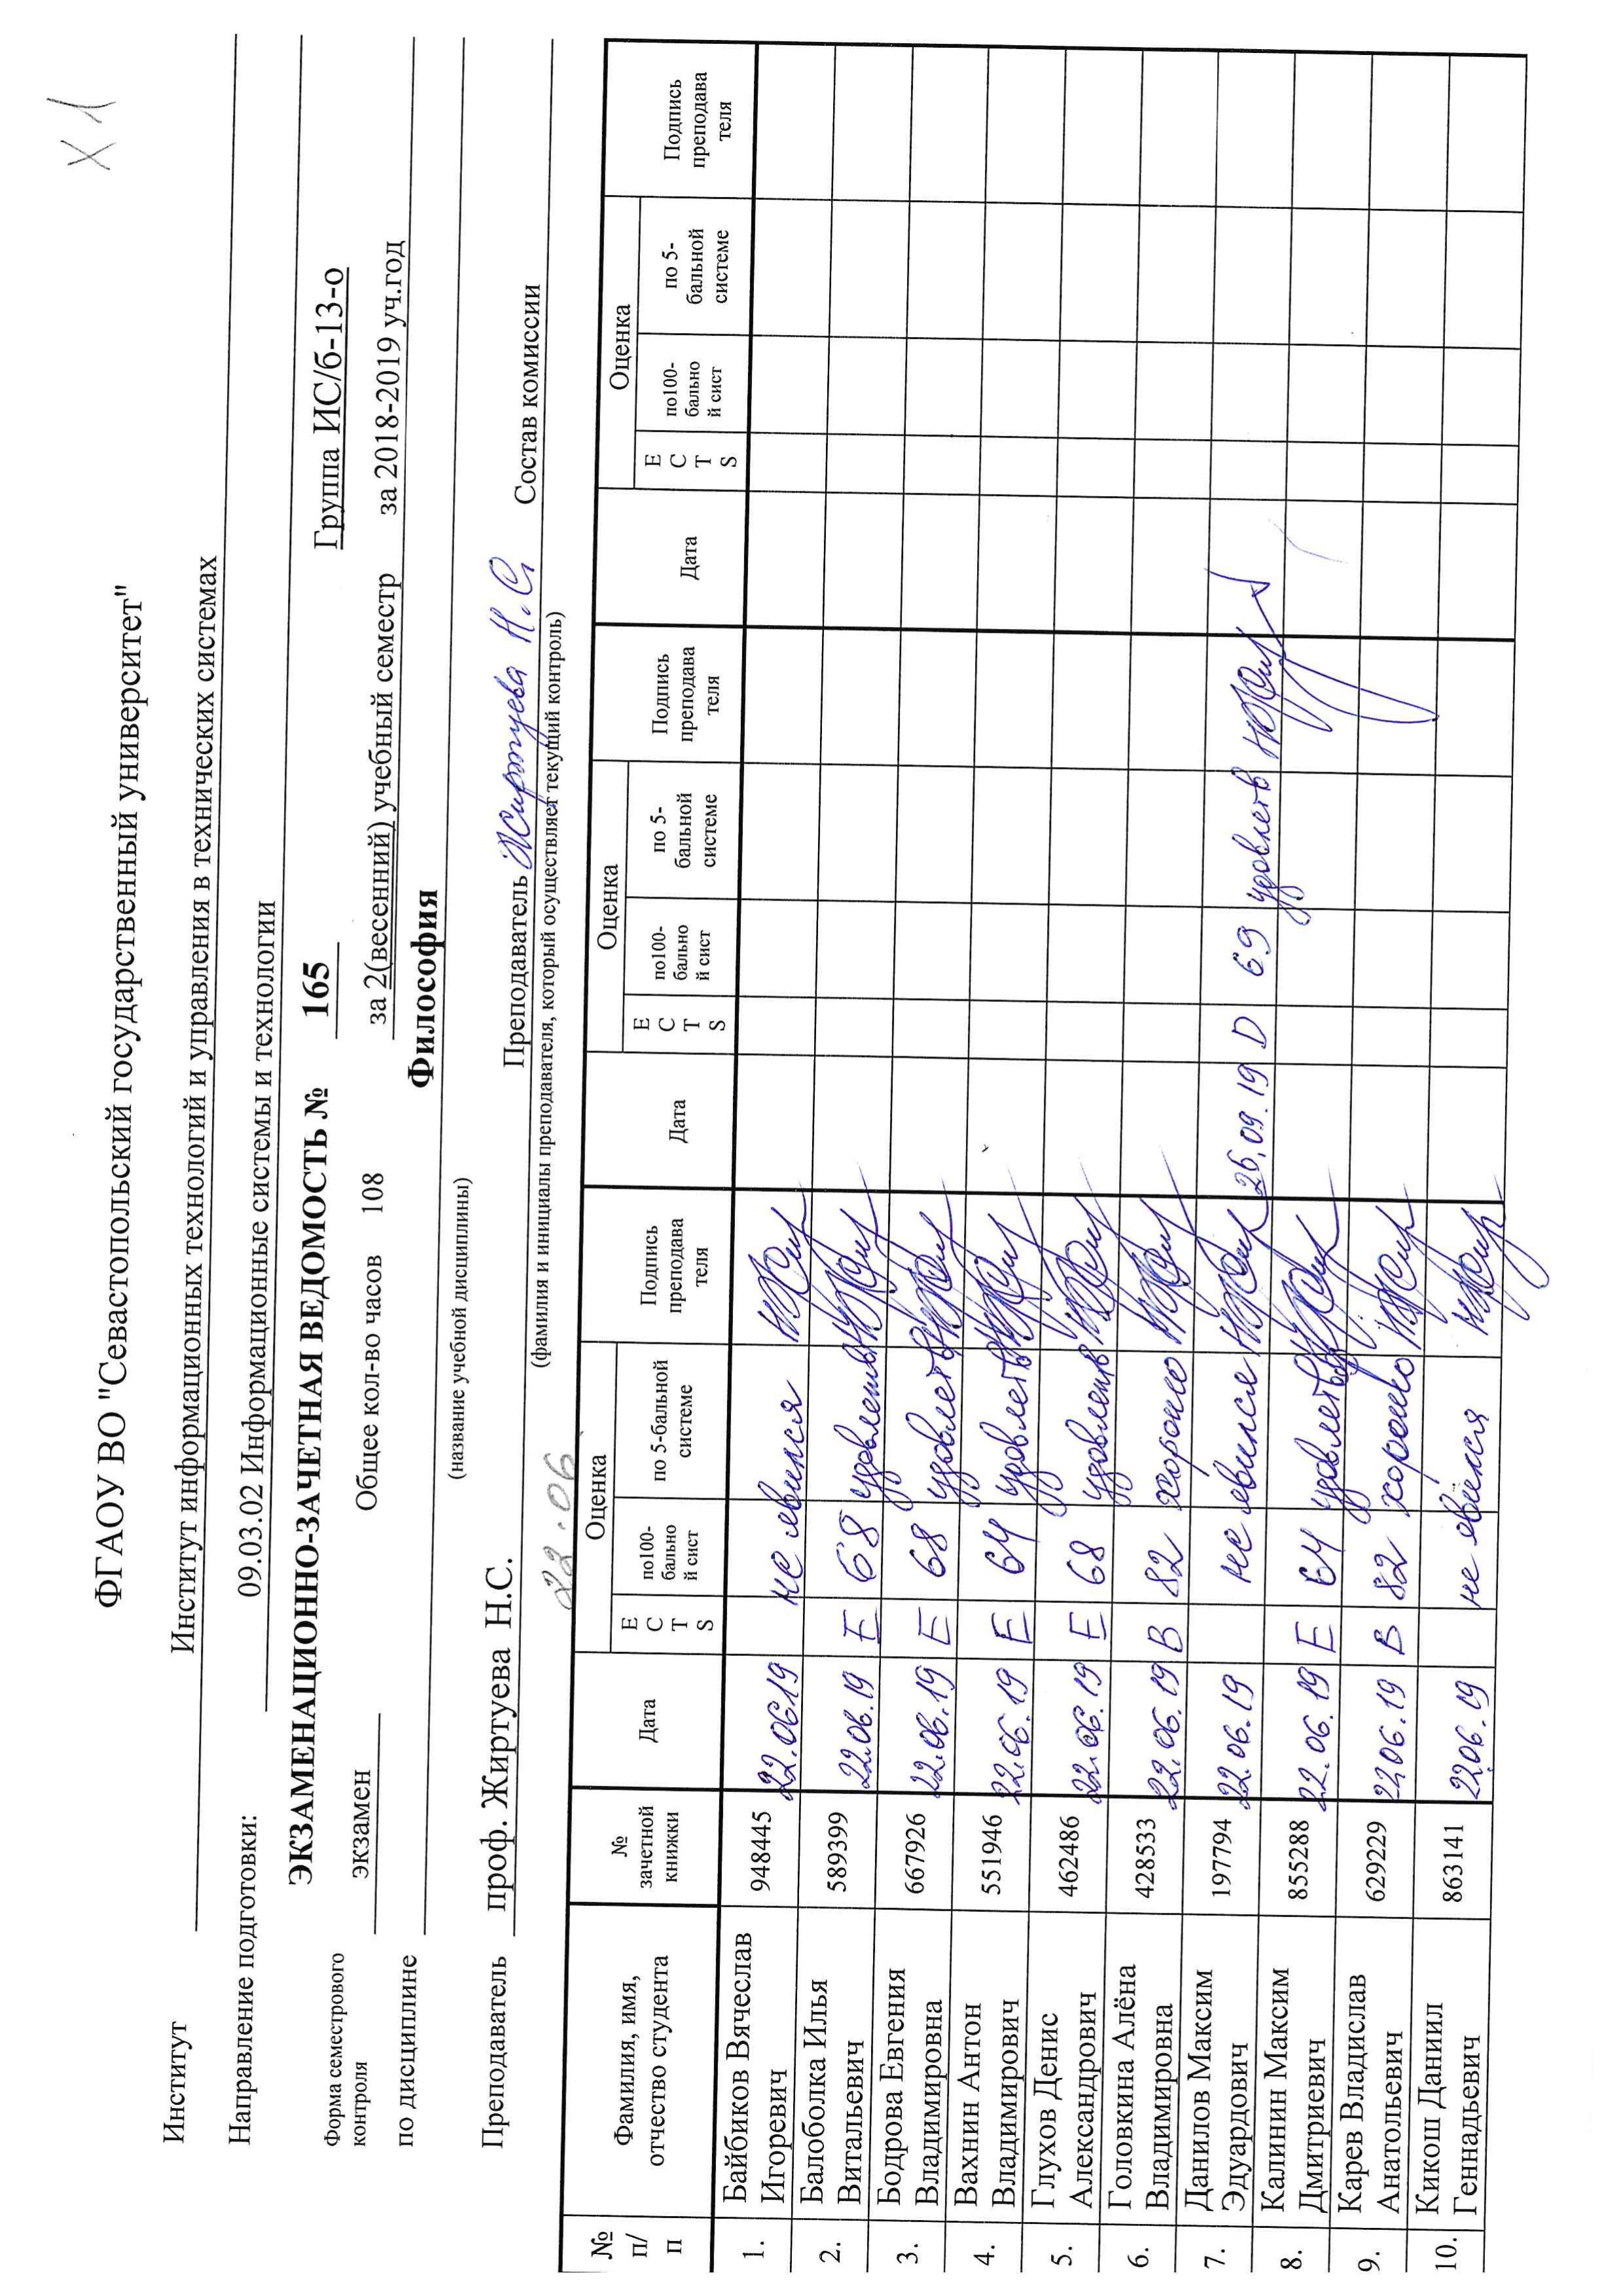 х 1
ФГАОУ ВО "Севастопольский государственный университет"
Институт Институт информационных технологий и управления в технических системах
Направление подготовки: 09.03.02 Информационные системы и технологии
ЭКЗАМЕНАЦИОННО-ЗАЧЕТНАЯ ВЕДОМОСТЬ № 165 Группа ИС/б-13-о
Форма семестрового
контроля экзамен Общее кол-во часов 108 за 2(весенний) учебный семестр за 2018-2019 уч.год
по дисциплине Философия
(название учебной дисциплины)
Преподаватель проф. Жиртуева Н.С. Преподаватель Жиртуева Н.С. Состав комиссии
(фамилия и инициалы преподавателя, который осуществляет текущий контроль)
22.06
№ п/п Фамилия, имя, отчество студента № зачетной книжки Дата Оценка ECTS по100-бально й сист по 5-бальной системе Подпись преподава теля Дата Оценка ECTS по100-бально й сист по 5-бальной системе Подпись преподава теля Дата Оценка ECTS по100-бально й сист по 5-бальной системе Подпись преподава теля
1. Байбиков Вячеслав Игоревич 948445 22.06 19 не явился
2. Балоболка Илья Витальевич 589399 22.06.19 E 68 удовлетв
3. Бодрова Евгения Владимировна 667926 22.06.19 E 68 удовлетв
4. Вахнин Антон Владимирович 551946 22.06.19 E 64 удовлетв
5. Глухов Денис Александрович 462486 22.06.19 E 68 удовлетв
6. Головкина Алёна Владимировна 428533 22.06.19 B 82 хорошо
7. Данилов Максим Эдуардович 197794 22.06.19 не явился 26.09.19 D 69 удовлетв
8. Калинин Максим Дмитриевич 855288 22.06.19 E 64 удовлетв
9. Карев Владислав Анатольевич 629229 22.06.19 B 82 хорошо
10. Кикош Даниил Геннадьевич 863141 22.06.19 не явился